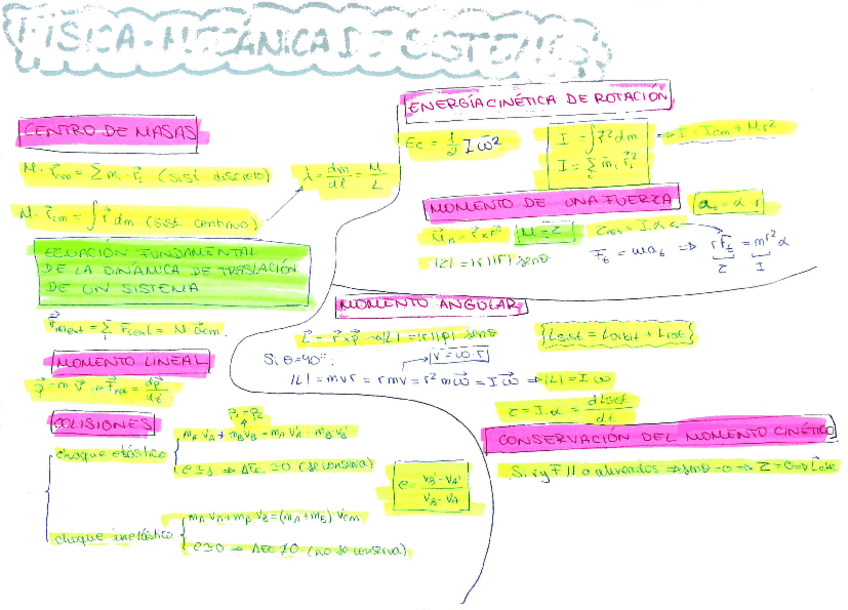 FÍSICA - MECÁNICA DE SISTEMAS
CENTRO DE MASAS
M · r⃗cm = Σ mᵢ · r⃗ᵢ (sist discreto)
M · r⃗cm = ∫ r⃗ dm (sist continuo)
λ = dm/dl = M/L
ECUACIÓN FUNDAMENTAL
DE LA DINÁMICA DE TRASLACIÓN
DE UN SISTEMA
MOMENTO LINEAL
COLISIONES
choque elástico
pᵢ = p₂
e = 1 ⇒ ΔEc = 0 (se conserva)
e = (v_B' - v_A')/(v_B - v_A)
choque inelástico
e = 0 ⇒ ΔEc ≠ 0 (no se conserva)
ENERGÍA CINÉTICA DE ROTACIÓN
Ec = 1/2 I ω⃗²
I = ∫ r⃗² dm
I = Σ mᵢ r⃗ᵢ²
⇒ I = Icm + Mr²
MOMENTO DE UNA FUERZA
M = τ
|τ| = |r||F| senθ
rFt = mr²α
τ I
MOMENTO ANGULAR
L⃗ = r⃗ x p⃗ → |L| = |r||p| senθ
{Lsist = Lorbit + Lint}
Si θ=90°:
v⃗ = ω⃗ · r
|L| = mvr = rmv = r²mω⃗ = Iω⃗ ⇒ |L| = Iω
τ = I.α = dLsist/dt
CONSERVACIÓN DEL MOMENTO CINÉTICO
Si r y F // o alineados ⇒ senθ = 0 ⇒ τ = 0 ⇒ L cte